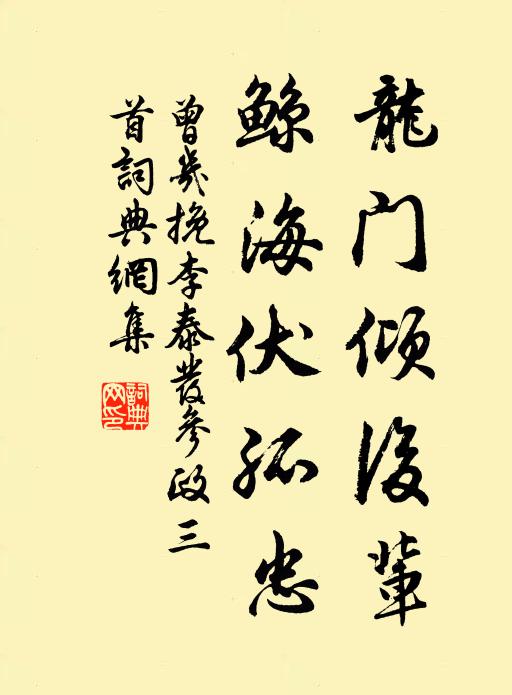 龍门倾後輩
鲸海伏孤忠
曾幾挽李泰發參政三
首詞典網集
詞典網印